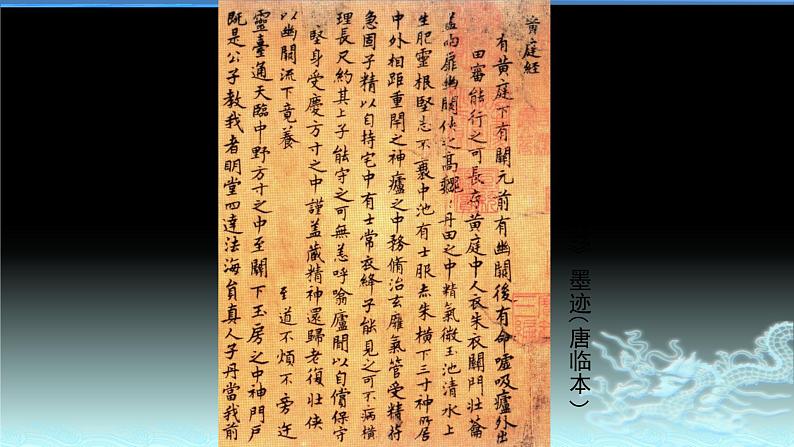 黄庭經
有黄庭下有關元前有幽闕後有命嘘吸廬外出
田審能行之可長存黄庭中人衣朱衣關門壯籥
盖兩扉幽闕侠之高巍丹田之中精氣微玉池清水上
生肥靈根堅志不衰中池有士服赤朱横下三寸神所居
中外相距重閇之神廬之中務脩治玄廱氣管受精符
急固子精以自持宅中有士常衣絳子能見之可不病横
理長尺約其上子能守之可無恙呼噏廬閒以自償保守
堅身受慶方寸之中謹盖藏精神還歸老復壯侠
以幽闕流下竟養 至道不煩不旁迕
靈臺通天臨中野方寸之中至關下玉房之中神門戸
既是公子教我者明堂四達法海員真人子丹當我前
墨迹（唐临本）